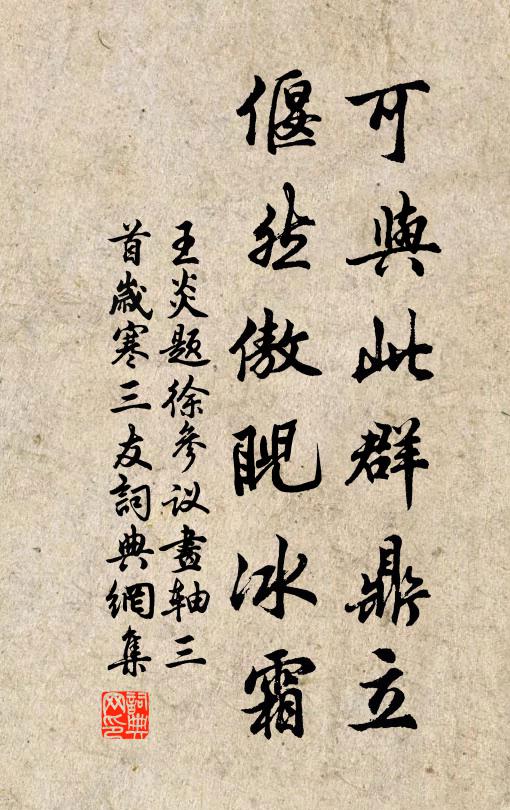 可與此群鼎立
偃然傲睨冰霜
王炎题徐參议畫軸三
首歲寒三友詞典網集
詞典网印